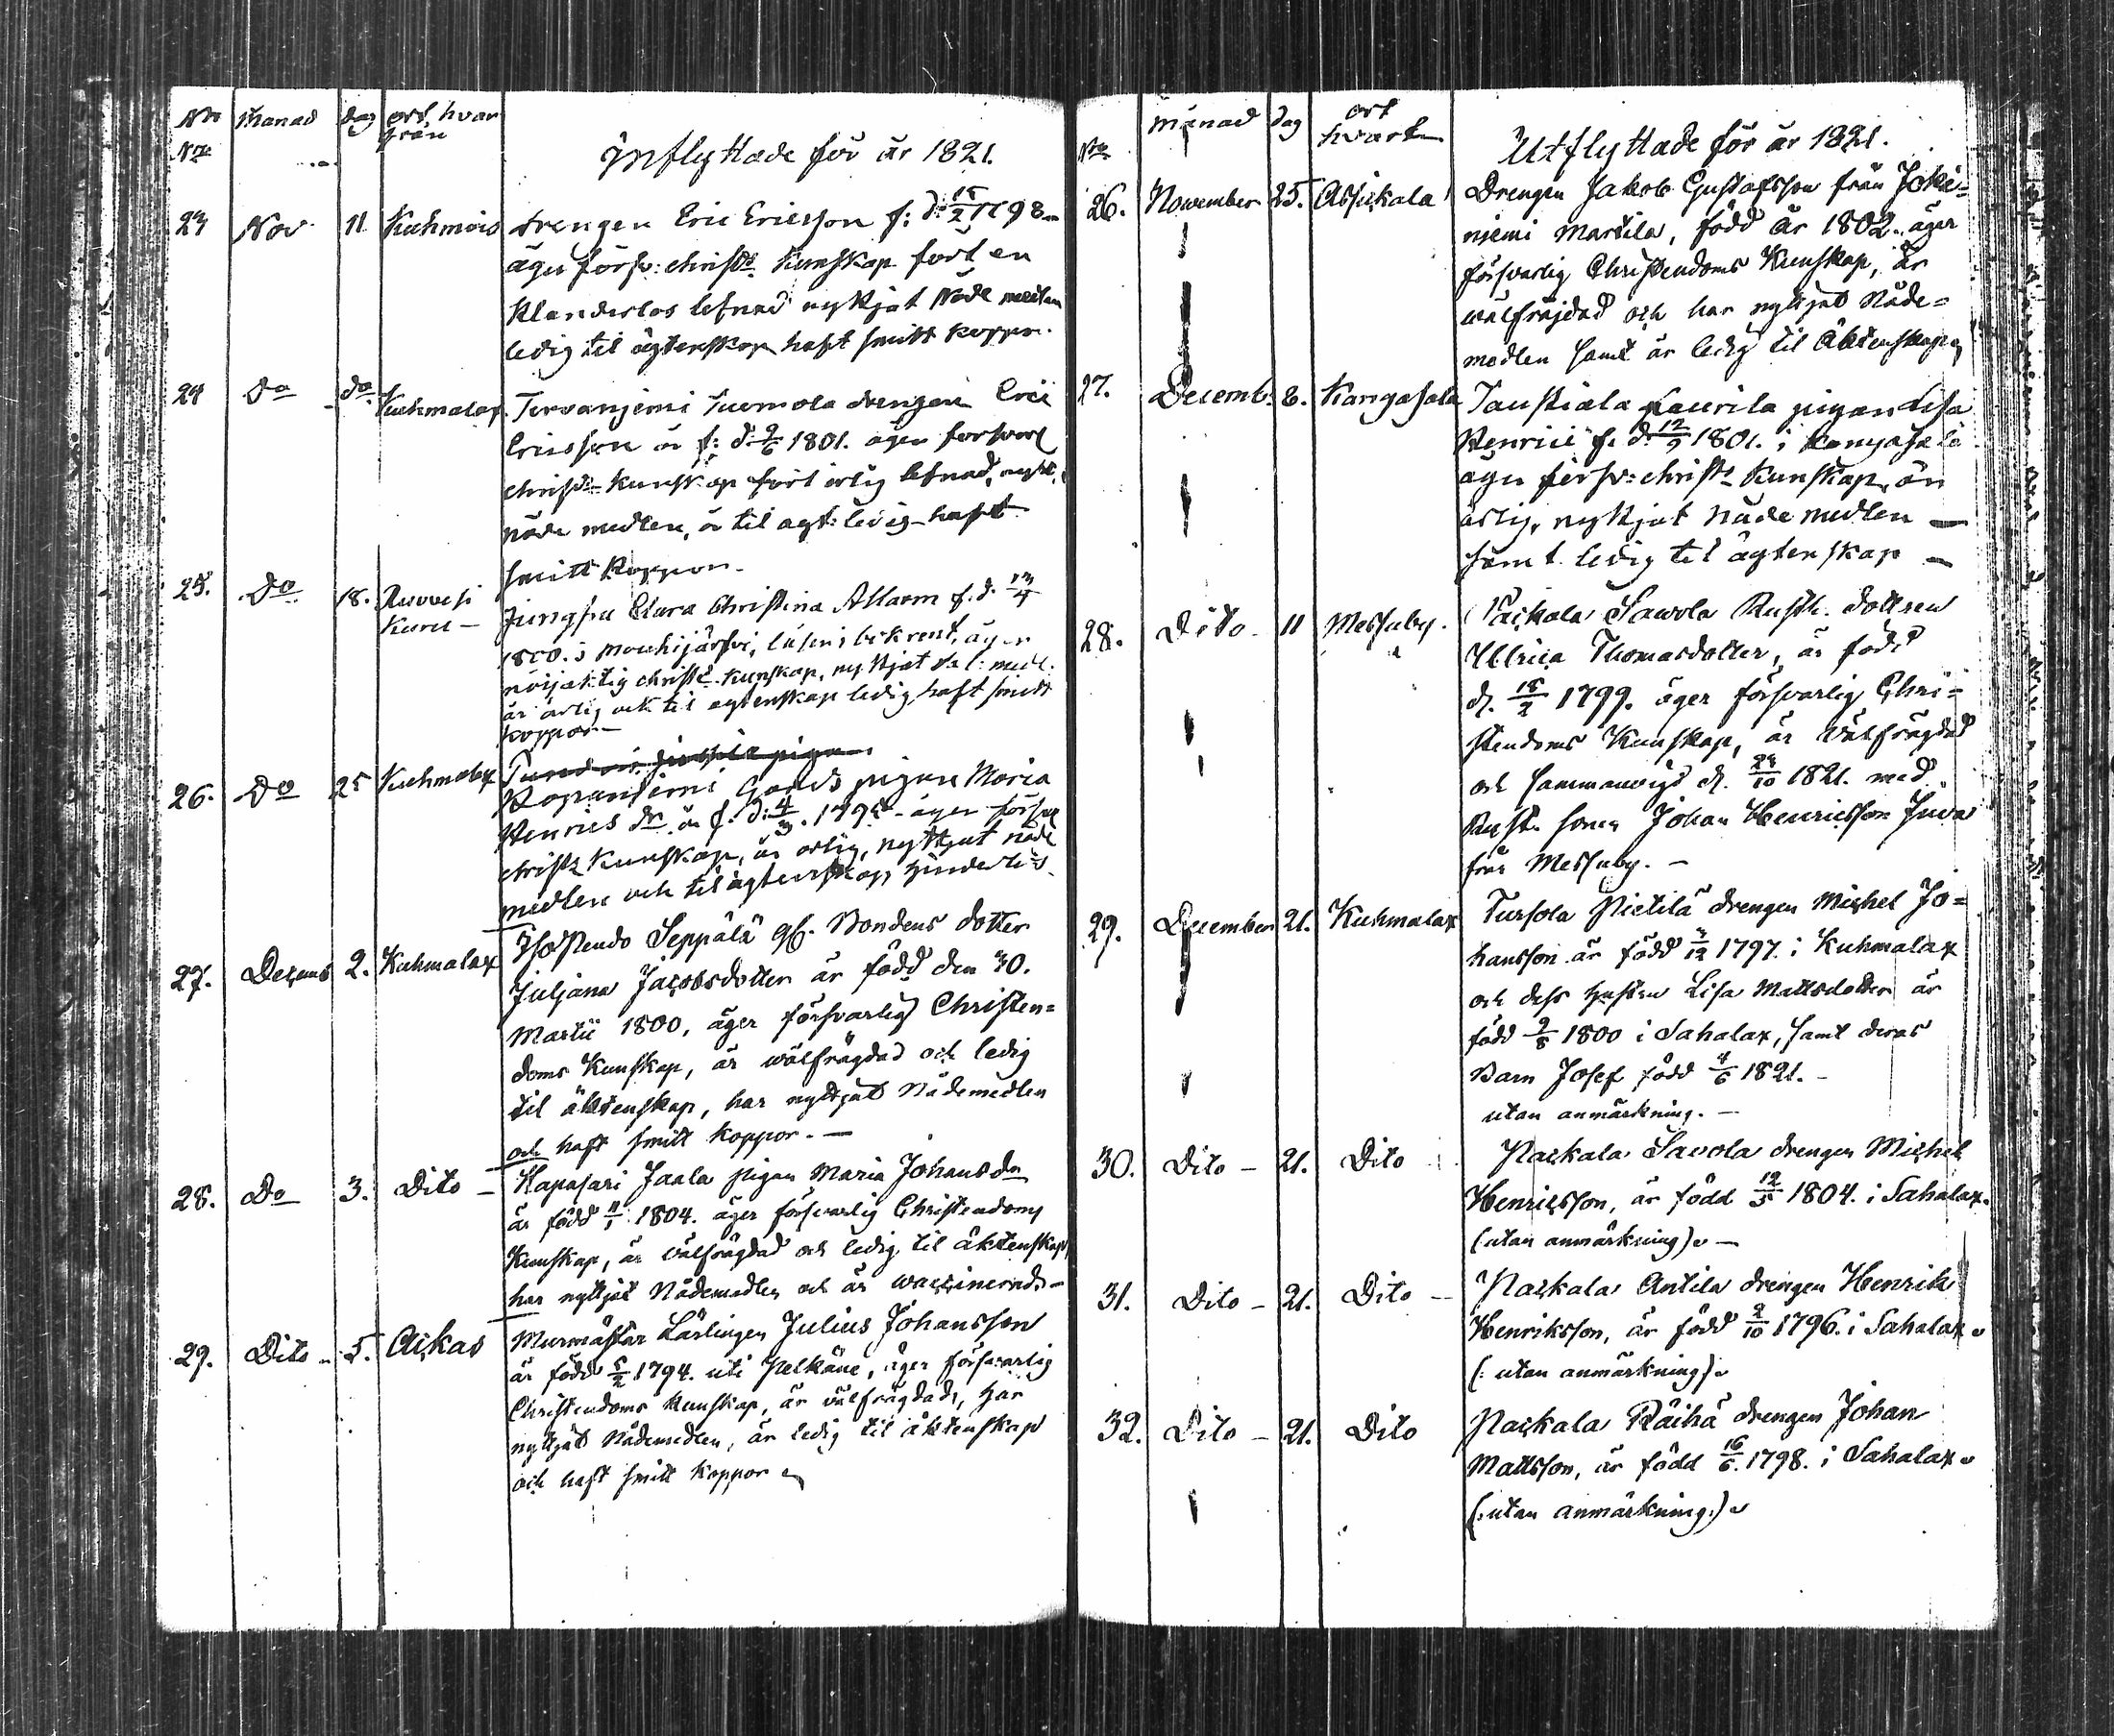 No Månad dag ort hvar från
No
Inflyttade för år 1821.
23 Nov 11 Kuhmois drengen Eric Ericsson f: d: 15/2 1798
äger försv: christ: kunskap fört en
klanderlös lefnad nyttjat Nåde medlen
ledig til ägtenskap haft smitt koppor.
24 Do do Kuhmalax Tervanjemi Tuomola drengen Eric
Ericsson är f: d: 9/6 1801. äger forsvarl
christ: kunskap fört ärlig lefnad, nytt:
nåde medlen, är til agt: ledig haft
smitt koppor.
25. Do 18. Ruovesi Kuru – Jungfru Clara Christina Allarm f. d. 13/4
1800. i Mouhijärfvi, läser i bok rent, äger
nöjaktig christ: kunskap, nyttjat sal: medl.
är ärlig och til agtenskap ledig haft smitt
koppor –
26. Do 25 Kuhmalax
Kopsaniemi Gårds pigan Maria
Henrics dr är f. d: 4/3 . 1795 – äger försvl
christ: kunskap, är ärlig, nyttjat nåde
medlen och til ägtenskap hinderlös.
27. Decemb 2. Kuhmalax Pohstendo Seppälä gl. Bondens dotter
Juljana Jacobsdotter är född den 30.
Martii 1800, äger försvarlig Christen=
doms Kunskap, är wälfrägdad och ledig
til äktenskap, har nyttjat Nådemedlen
och haft smitt koppor. –
28. Do 3. Dito – Hapasari Jaala pigan Maria Johansdr
är född 11/1 1804. äger försvarlig Christendoms
Kunskap, är välfrägdad och ledig til äktenskap
har nyttjat Nådemedlen och är waccinerad –
29. Dito 5. Ackas Murmästar Lärlingen Julius Johansson
är född 5/2 1794. uti Pelkäne, äger försvarlig
Christendoms kunskap, är välfrägdad, har
nyttjat Nådemedlen, är ledig til äktenskap
och haft smitt koppor
No månad dag ort hvart
Utflyttade för år 1821.
26. November 25. Assickala Drengen Jakob Gustafsson från Joke=
njemi Martila, född År 1802. äger
försvarlig Christendoms Kunskap, är
wälfräjdad och har nyttjat Nåde=
medlen samt är ledig til Äktenskap
27. Decemb. 8. Kangasala Taustiala Laurila pigan Lisa
Henrici f. d: 12/9 1801. i Kangasala
äger försv: christ: kunskap, är
ärlig, nyttjat Nåde medlen –
samt ledig til ägtenskap –
28. Dito 11 Messuby. Päckala Sawola Rusth. dottren
Ullrica Thomasdotter, är född
d. 18/2 1799. äger försvarlig Chri=
stendoms Kunskap, är Välfrägdad
och sammanvigd d. 28/10 1821. med
Rusth. sonen Johan Henricsson Juva
från Messuby. –
29. December 21. Kuhmalax Tursola Pietilä drengen Michel Jo=
hansson är född 3/12 1797. i Kuhmalax
och dess hustru Lisa Mattsdotter är
född 9/8 1800 i Sahalax, samt deras
Barn Josef född 4/6 1821. –
utan anmärkning. –
30. Dito – 21. Dito Packala Savola drengen Michel
Henricsson, är född 12/5 1804. i Sahalax.
(utan anmärkning). –
31. Dito – 21. Dito – Packala Antila drengen Henrik
Henriksson, är född 2/10 1796. i Sahalax.
(: utan anmärkning).
32. Dito – 21. Dito Packala Räihä drengen Johan
Mattsson, är född 16/6. 1798. i Sahalax.
(: utan anmärkning.)